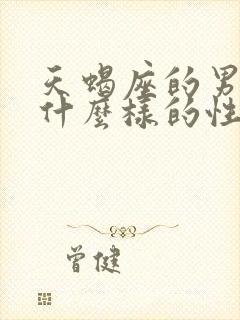 天蝎座的男
什麼樣的性
曾健